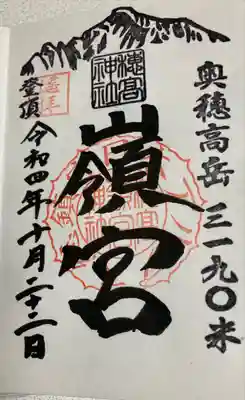 奥穂高岳 三一九〇米
穂高
神社
嶺宮
登頂 令和四年十月二十二日